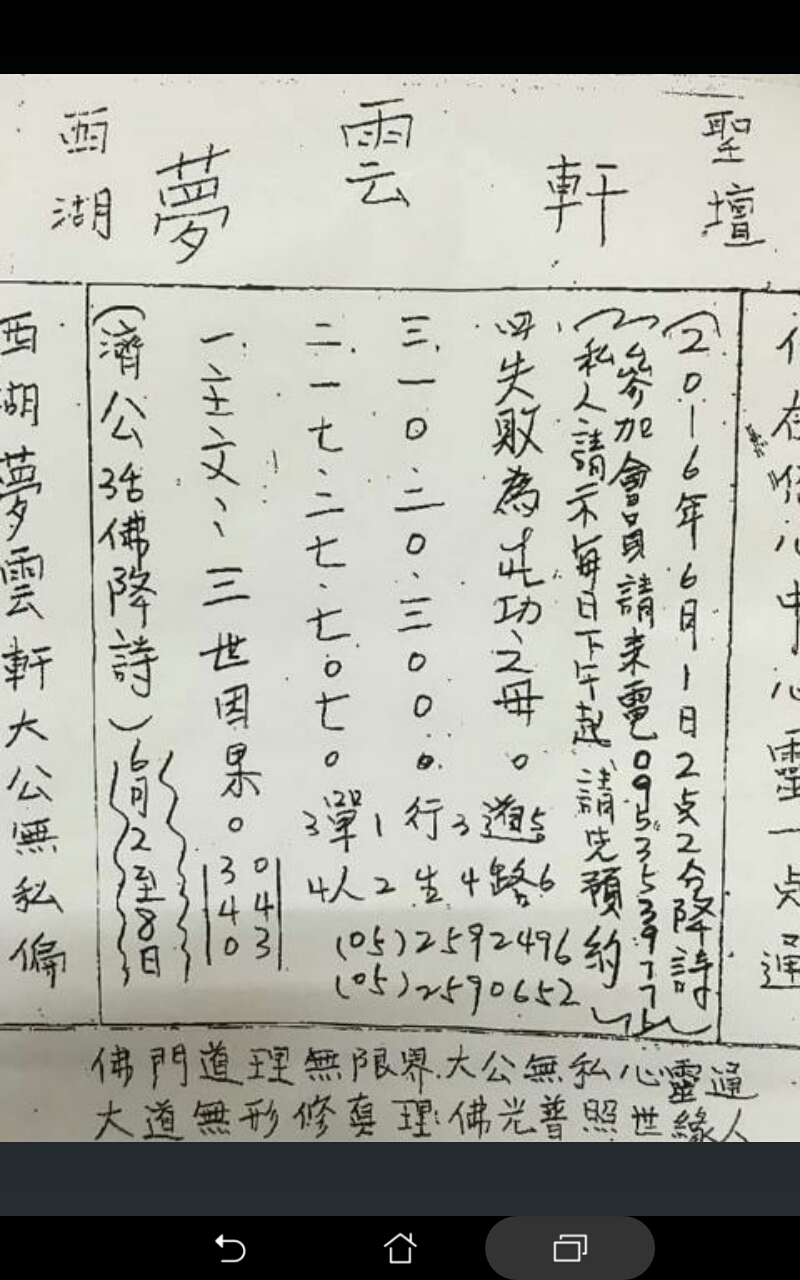 西湖 夢 雲 軒 聖壇
(2016年6月1日2点2分降詩)
(參加會員請来電095353977
私人請示每日下午起請先預約)
四失敗為成功之母。
三.一0.二0.三00。
二.一七.二七.七0七。
一.主文:三世因果。
(濟公活佛降詩)
6月2至8日
340
043
3單1行3道5
4人2生4路6
(05)2592496
(05)2590652
西湖夢雲軒大公無私偏
心中心靈一点通
佛門道理無限界.大公無私心靈通
大道無形修真理:佛光普照世緣人